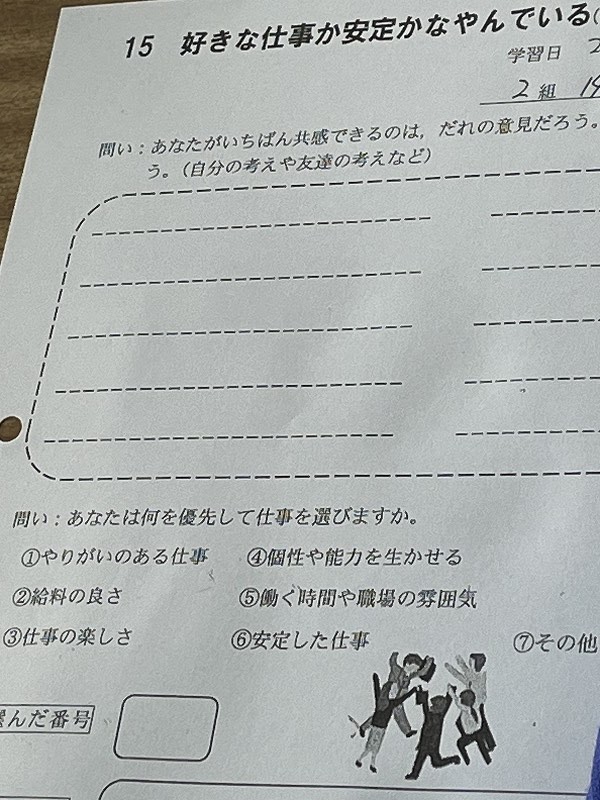 15 好きな仕事か安定かなやんでいる(
学習日 2
2 組 19
問い：あなたがいちばん共感できるのは，だれの意見だろう。
う。（自分の考えや友達の考えなど）
問い：あなたは何を優先して仕事を選びますか。
①やりがいのある仕事 ④個性や能力を生かせる
②給料の良さ ⑤働く時間や職場の雰囲気
③仕事の楽しさ ⑥安定した仕事 ⑦その他
んだ番号